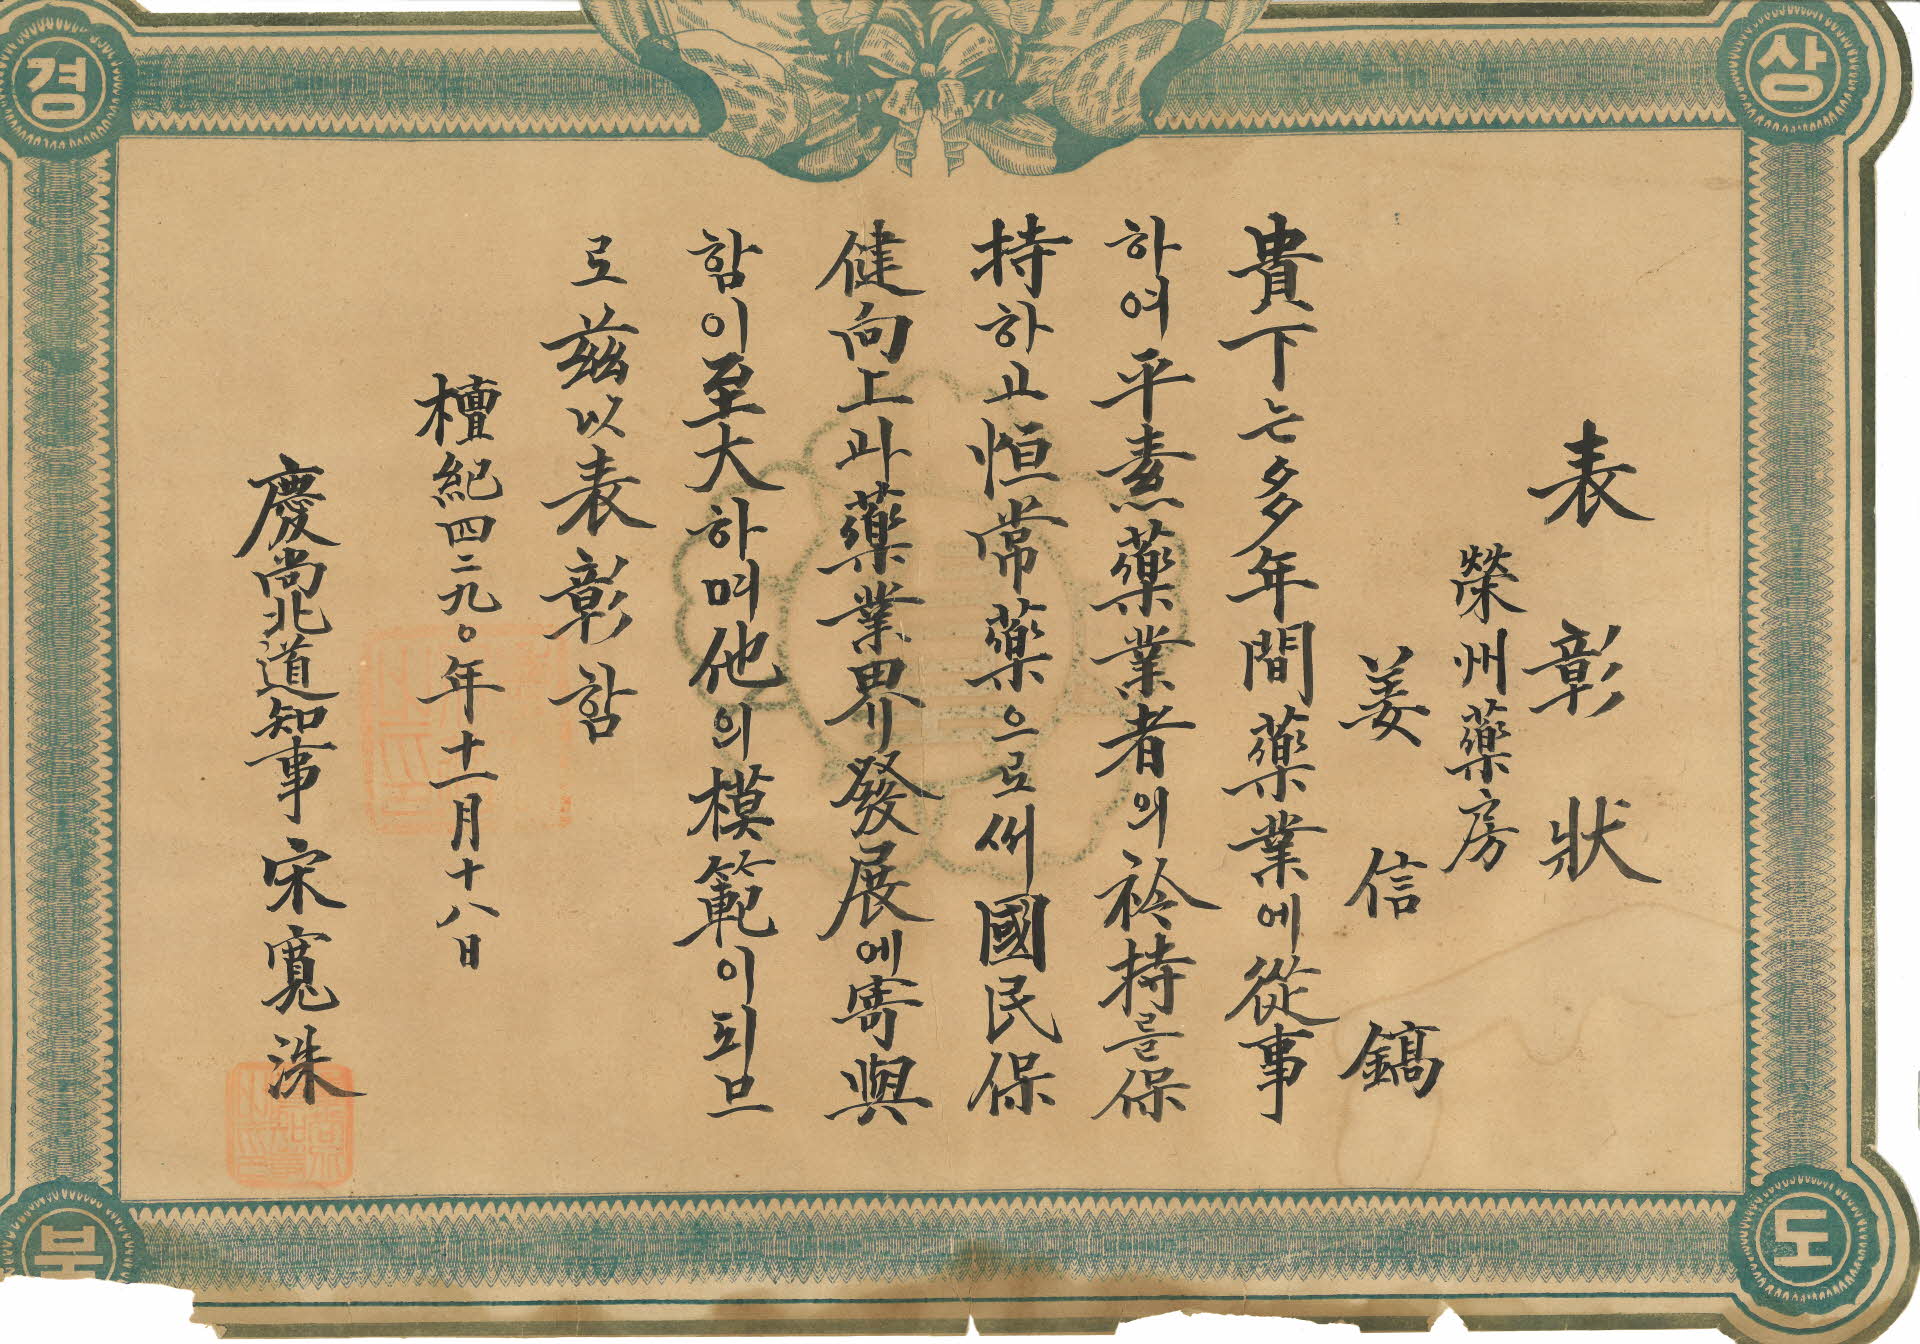 경
상
북
도
表彰狀
榮州藥房
姜信鎬
貴下는多年間藥業에從事
하여平素藥業者의衿持를保
持하고恒常藥으로써國民保
健向上과藥業界發展에寄與
함이至大하며他의模範이되므
로玆以表彰함
檀紀四二九〇年十一月十八日
慶尙北道知事宋寬洙